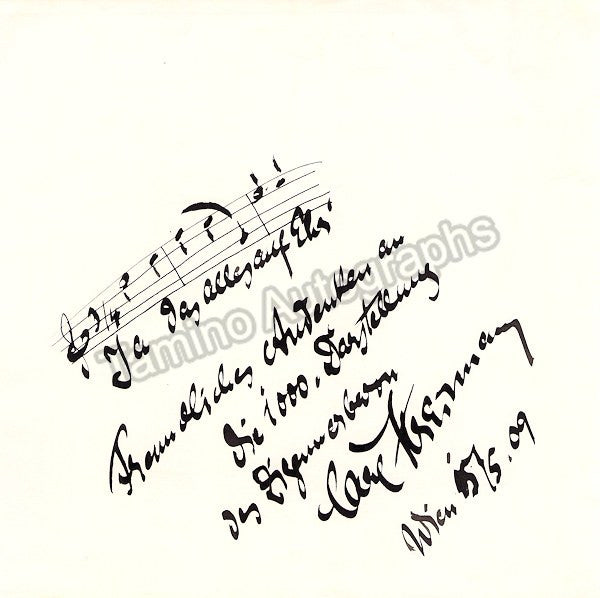 3/4
Ja das alles auf Ehr'
Freundliches Andenken an
die 1000. Darstellung
des Zigeunerbaron
Carl
Wien 15/5.09
Tamino Autographs